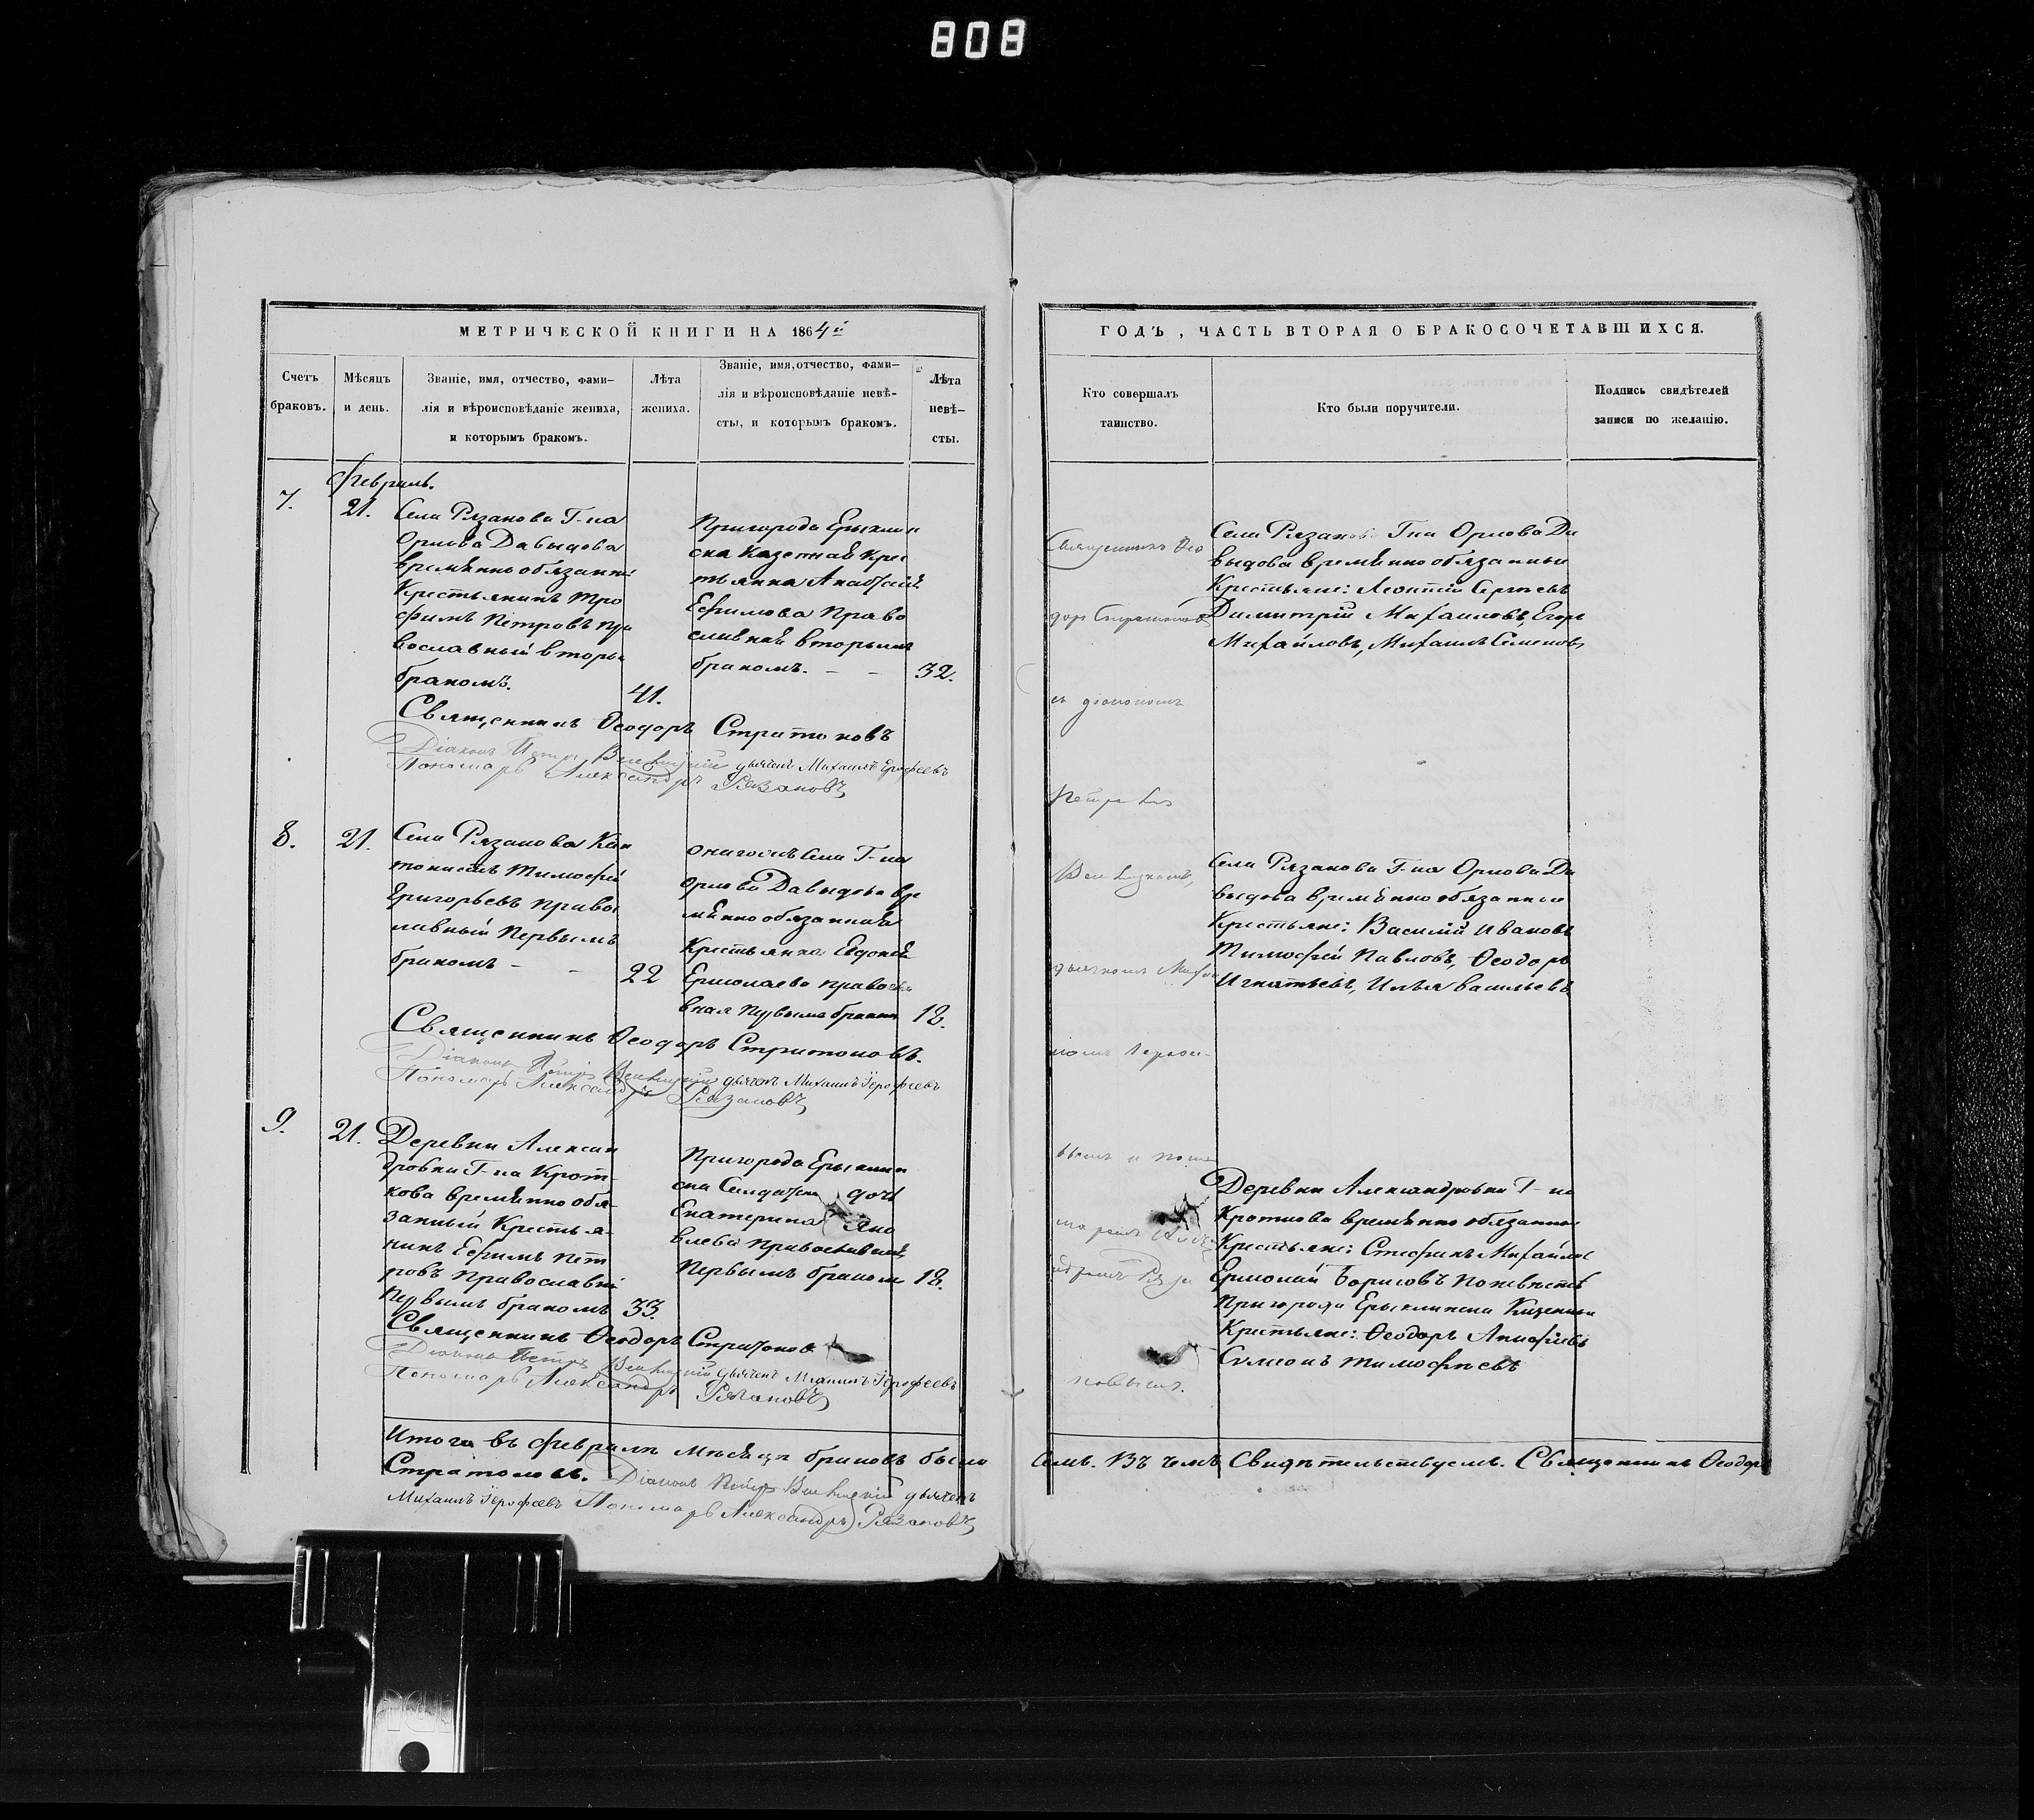 808
МЕТРИЧЕСКОЙ КНИГИ НА 1864й
Счетъ браковъ.
Мѣсяцъ и день.
Званіе, имя, отчество, фами-
лія и вѣроисповѣданіе жениха,
и которымъ бракомъ.
Лѣта
жениха.
Званіе, имя, отчество, фами-
лія и вѣроисповѣданіе невѣ-
сты, и которымъ бракомъ.
Лѣта
невѣ-
сты.
Февраль.
7.
21.
Села Рязанова Г-на
Орлова Давыдова
временно обязанный
Крестьянинъ Тро
фимъ Петровъ пра
вославный вторы
бракомъ.
41.
Пригорода Ерыклин
ска Казенная Крес
тьянка
Ефимова Право
славная вторымъ
бракомъ. - -
32.
Священникъ Ѳеодоръ Стратоновъ
Діаконъ Петръ дьячекъ Михаилъ Ерофеевъ
Пономарь Александръ Рязановъ
8.
21.
Села Рязанова Кан
тонистъ Тимофей
Григорьевъ правос
лавный первымъ
бракомъ - -
22
Онагожъ села Г-на
Орлова Давыдова вре
мѣнно обязанная
Крестьянка Евдокея
Ермолаева правосла
вная первымъ бракомъ
18.
Священникъ Ѳеодоръ Стратоновъ.
Діаконъ Петръ дьячекъ Михаилъ Іерофеевъ
Пономарь Александръ Рязановъ
9.
21.
Деревни Алексан
дровки Г-на Крот-
кова временно обя-
занный Крестья-
нинъ Ефимъ Пет
ровъ православный
первымъ бракомъ
33.
Пригорода Ерыклин
ска Солдатская дочь
Екатерина Яко
влева православная
первымъ бракомъ
18.
Священникъ Ѳеодоръ Стратоновъ
Діаконъ Петръ дьячекъ Михаилъ Іерофеевъ
Пономарь Александръ Рязановъ
Итого въ февралѣ мѣсяцѣ браковъ было
Стратоновъ. Діаконъ Петръ дьячекъ
Михаилъ Іерофеевъ Пономарь Александръ Рязановъ
ГОДЪ, ЧАСТЬ ВТОРАЯ О БРАКОСОЧЕТАВШИХСЯ.
Кто совершалъ
таинство.
Кто были поручители.
Подпись свидѣтелей
записи по желанію.
Священникъ Ѳео
доръ Стратоновъ
съ діакономъ
Петромъ
дьячкомъ Михаи
ломъ Іерофе-
вымъ и поно
маремъ Алекса
ндромъ Ряза
новымъ.
Села Рязанова Г-на Орлова Да
выдова временно обязанные
Крестьяне: Леонтій Сергѣевъ
Димитрій Михаиловъ, Егоръ
Михайловъ, Михаилъ Семеновъ
Села Рязанова Г-на Орлова Да
выдова временно обязанные
Крестьяне: Василій Ивановъ
Тимофей Павловъ, Ѳеодоръ
Игнатьевъ, Илья Васильевъ
Деревни Александровки Г-на
Кроткова временно обязанные
Крестьяне: Стефанъ Михайловъ
Ермолай Борисовъ по невѣстѣ
Пригорода Ерыклинска Казенные
Крестьяне: Ѳеодоръ
Симеонъ Тимофеевъ
семь. Въ чемъ свидѣтельствуемъ. Священникъ Ѳеодоръ